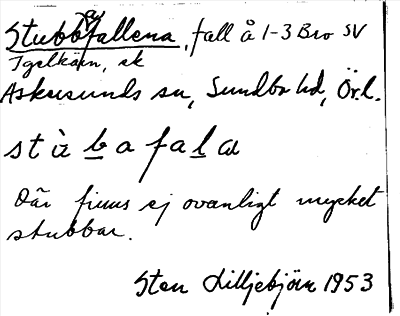 Stubbfallena, fall å 1-3 Bro SV
Igelkärn, sk
Askersunds sn, Sundbo hd, Ör.l.
stu̇bafala
Där finns ej ovanligt mycket
stubbar.
Sten Lilljebjörn 1953